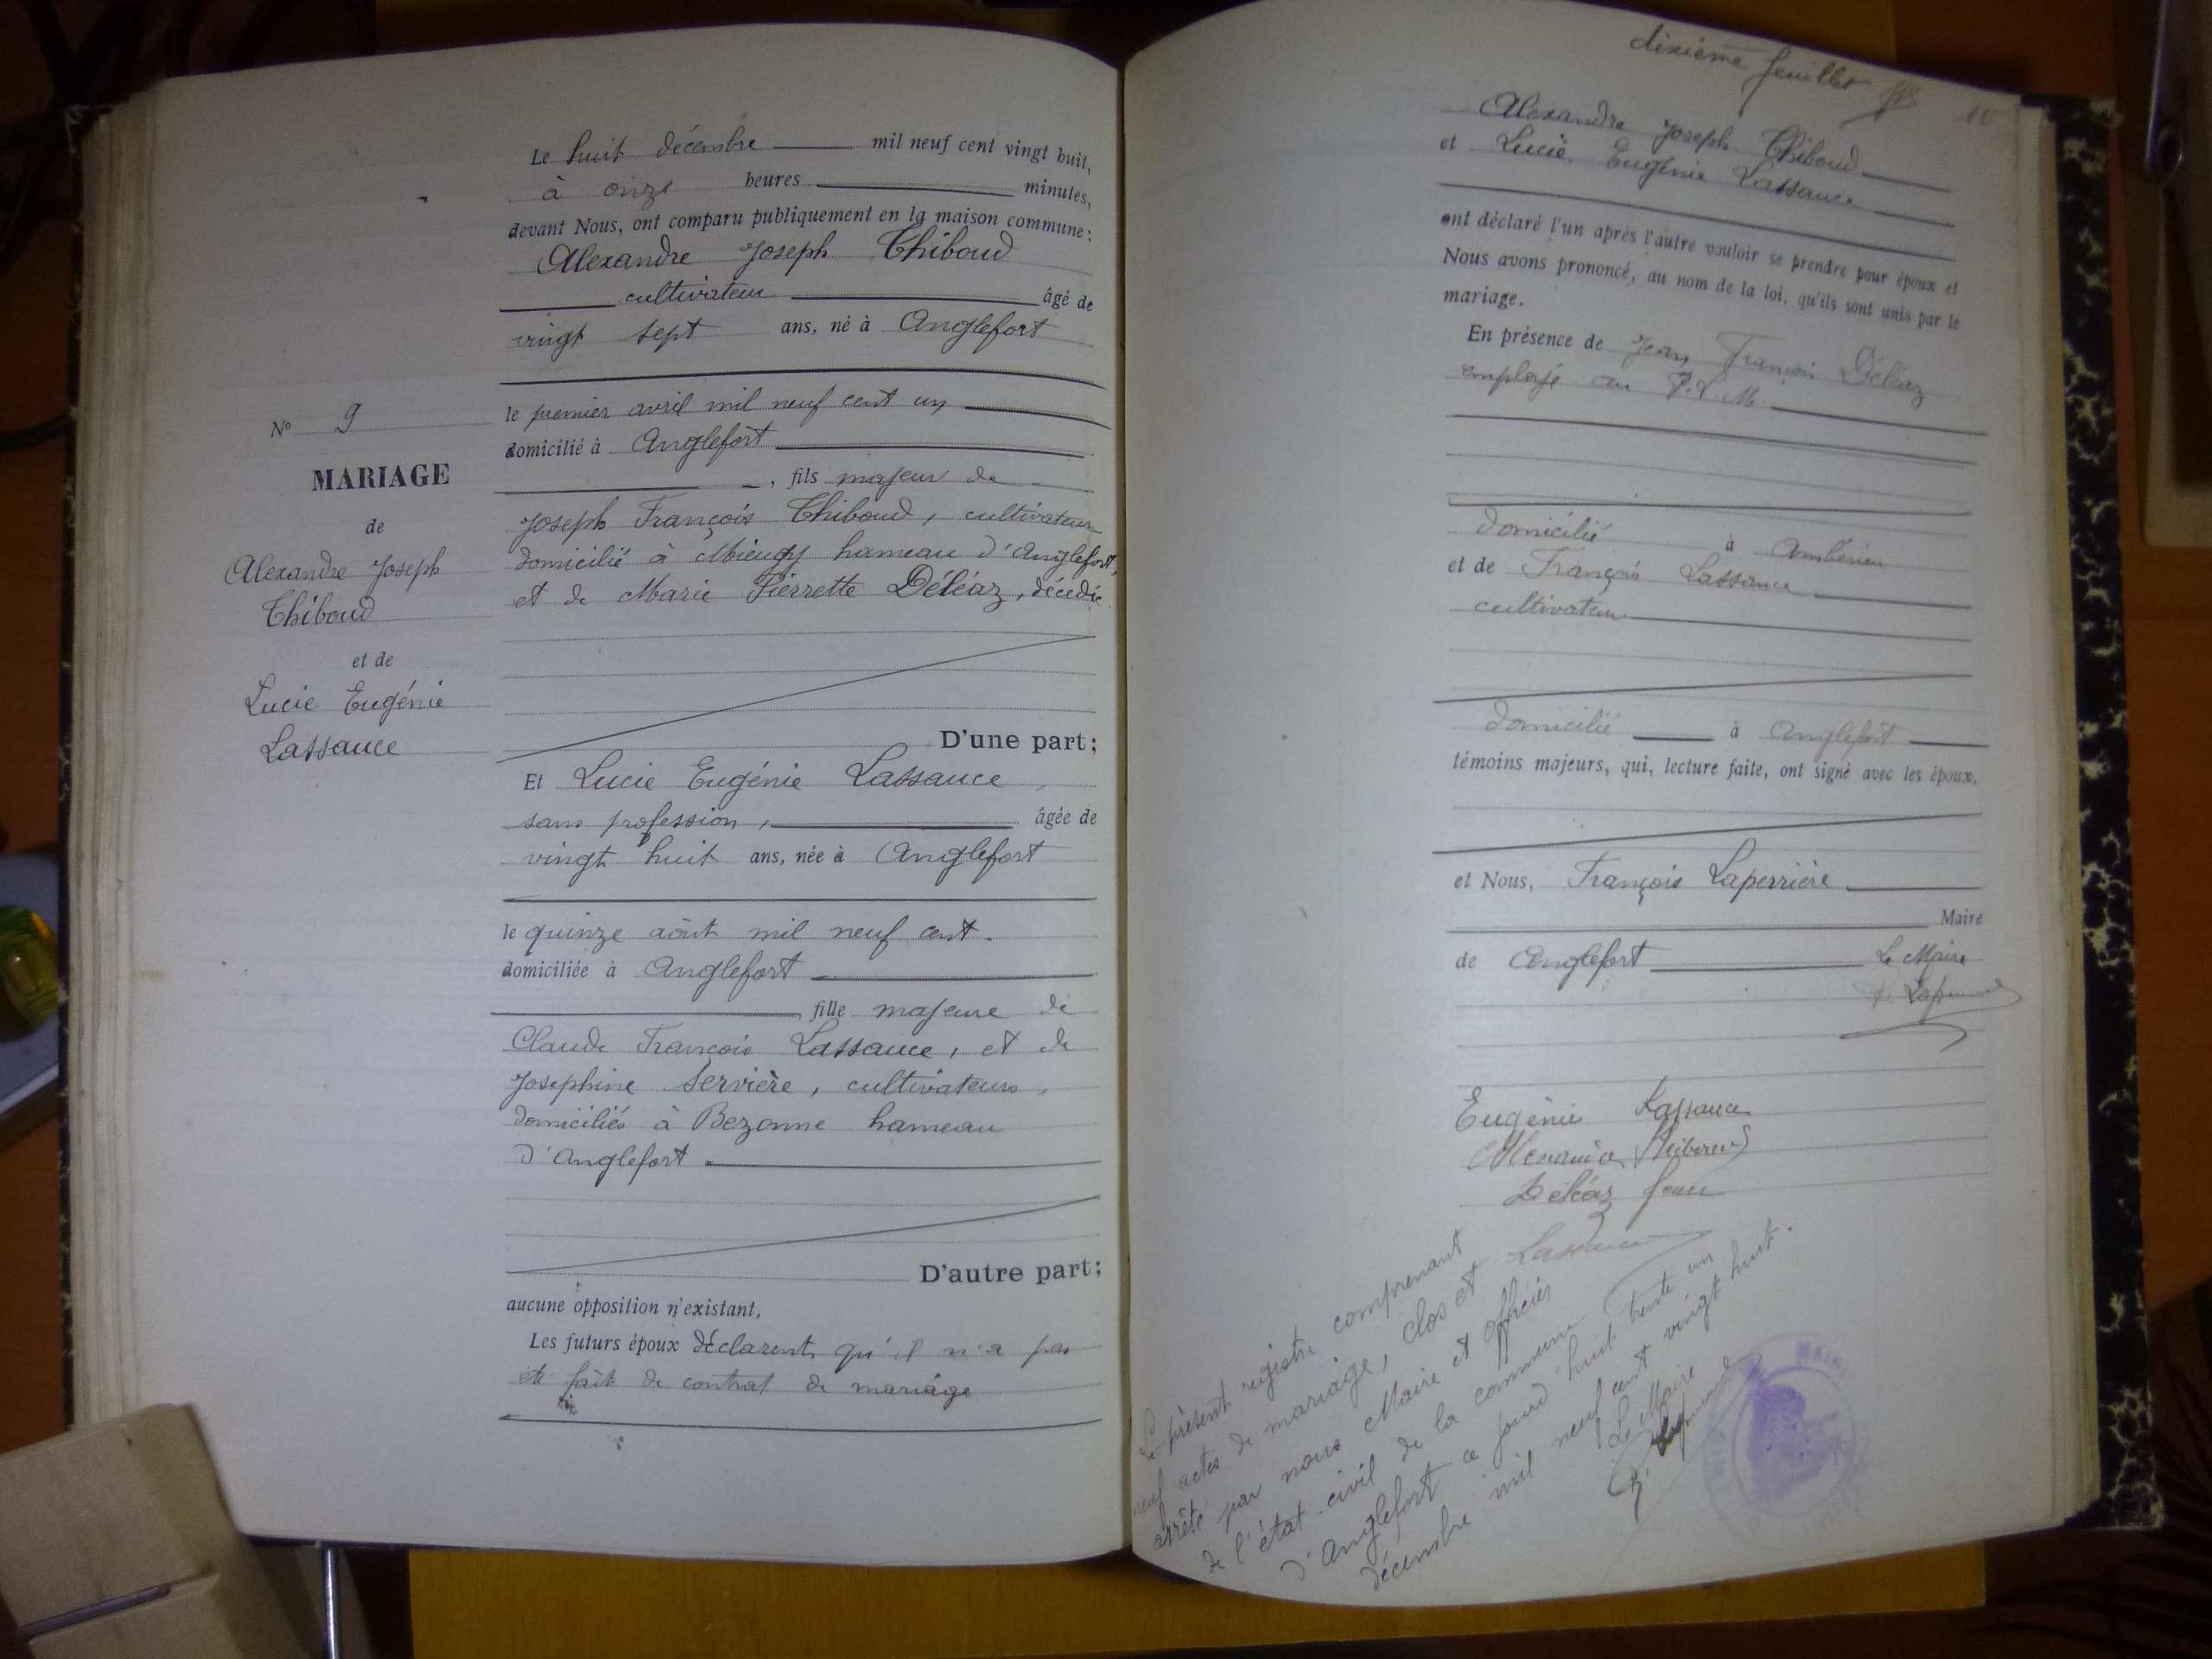 Le huit décembre mil neuf cent vingt huit,
à onze heures minutes,
devant Nous, ont comparu publiquement en la maison commune :
Alexandre Joseph Thiboud
cultivateur âgé de
vingt sept ans, né à Anglefort
le premier avril mil neuf cent un
domicilié à Anglefort
, fils majeur de
Joseph François Thiboud, cultivateur
domicilié à hameau d'Anglefort,
et de Marie Pierrette Déléaz, décédée
D'une part ;
Et Lucie Eugénie Lassauce,
sans profession, âgée de
vingt huit ans, née à Anglefort
le quinze août mil neuf cent.
domiciliée à Anglefort
, fille majeure de
Claude François Lassauce, et de
Josephine Servière, cultivateurs,
domiciliés à Bezonne hameau
d'Anglefort.
D'autre part ;
aucune opposition n'existant,
Les futurs époux déclarent qu'il n'a pas
été fait de contrat de mariage
No 9
MARIAGE
de
Alexandre Joseph
Thiboud
et de
Lucie Eugénie
Lassauce
dixième feuillet
10
Alexandre Joseph Thiboud
et Lucie Eugénie Lassauce
ont déclaré l'un après l'autre vouloir se prendre pour époux et
Nous avons prononcé, au nom de la loi, qu'ils sont unis par le
mariage.
En présence de Jean François Déléaz
employé au P.L.M.
domicilié à Ambérieu
et de François Lassauce
cultivateur
domicilié à Anglefort
témoins majeurs, qui, lecture faite, ont signé avec les époux,
et Nous, François Laperrière
Maire
de Anglefort Le Maire
Eugénie Lassauce
Alexandre Thiboud
Déléaz Jean
Lassauce
Le présent registre comprenant
neuf actes de mariage, clos et
arrêté par nous Maire et officier
de l'état civil de la commune
d'Anglefort ce jourd'huit trente un
décembre mil neuf cent vingt huit.
Le Maire